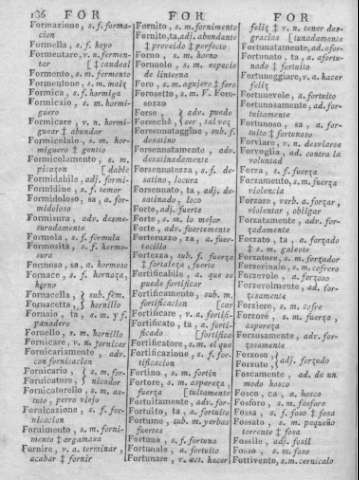 186 FOR FOR FOR
Formazione, s. f. formacion
Formella, s. f. hoyo
Formentare, v. n. fermentar
Formento, s. m. fermento
Formentone, s. m. maiz
Formica, s. f. hormiga
Formicaio, s. m. hormiguero
Formicare, v. n. hormiguear ‡ abundar
Formicolaio, s. m. hormiguero ‡ gentío
Formicolamento, s. m. picazon [dable
Formidabile, adj. formi-
Formidine, s. f. temor
Formidoloso, sa, a. formidoloso
Formisura, adv. desmesuradamente
Formola, s. f. fórmula
Formosità, s. f. hermosura
Formoso, sa, a. hermoso
Fornace, s. f. hornaza, horno
Fornacella, } sub. fém.
Fornacetta, } hornillo
Fornaio, ta, s. m. y f. panadero
Fornello, s. m. hornillo
Fornicare, v. n. fornicar
Fornicariamente, adv. con fornicacion
Fornicario, } s. m. for-
Fornicatore, } nicador
Fornicatorello, s. m. astuto, perro viejo
Fornicazione, s. f. fornicacion
Fornimento, s. m. fornimento ‡ argamaza
Fornire, v. a. terminar, acabar ‡ fornir
Fornito, s. m. fornimento
Fornito, ta, adj. abundante ‡ proveido ‡ perfecto
Forno, s. m. horno
Fornuolo, s. m. especie de linterna
Foro, s. m. agujero ‡ foro
Forosetto, s. m. V. Forosozzo
Forse, } adv. puede
Forsechè, } ser, tal vez
Forsennataggine, sub. f. desatino
Forsennatamente, adv. desatinadamente
Forsennatezza, s. f. desatino, locura
Forsennato, ta, adj. desatinado, loco
Forte, adj. fuerte
Forte, s. m. lo mejor
Forte, adv. fuertemente
Forteruzzo, za, a. fuertecillo
Fortezza, sub. f. fuerza ‡ fortaleza, fuerte
Fortificabile, a. que se puede fortificar
Fortificamento, sub. m. fortificacion [car
Fortificare, v. a. fortifi-
Fortificato, ta, a. fortificado [fortifica
Fortificatore, s. m. el que
Fortificazione, s. f. fortificacion
Fortino, s. m. fortin
Fortore, s. m. aspereza, fuerza
Fortuitamente, adv. fortuitamente
Fortuito, ta, a. fortuito
Fortume, sub. m. yerbas fuertes
Fortuna, s. f. fortuna
Fortunale, a. fortuito
Fortunare, v. act. hacer
feliz ‡ v. n. tener desgracias
Fortunatamente, ad. afortunadamente
Fortunato, ta, a. afortunado ‡ fortuito
Fortuneggiare, v. a. hacer feliz
Fortunevole, a. fortuito
Fortunosamente, ad. fortuitamente
Fortunoso, sa, a. fortuito ‡ fortunoso
Forviare, v. n. desviarse
Forvoglia, ad. contra la voluntad
Forza, s. f. fuerza
Forzamento, s. m. fuerza, violencia
Forzare, verb. a. forzar, violentar, obligar
Forzatamente, adv. forzadamente
Forzato, ta, a. forzado ‡ s. m. galeote
Forzatore, s. m. forzador
Forzerinaio, s. m. cofrero
Forzerolo, a. forzoso
Forzevolmente, ad. forzosamente
Forziere, s. m. cofre
Forzore, s. m. fuerza, aspereza
Forzosamente, adv. forzosamente
Forzoso, } adj. forzado
Forzuto, }
Foscamente, ad. de un modo hosco
Fosco, ca, a. hosco
Fosforo, s. m. fósforo
Fossa, s. f. foso ‡ fosa
Fossato, s. m. pequeño torrente ‡ foso
Fossile, adj. fosil
Fosso, s. m. foso
Fottivento, s. m. cernícalo